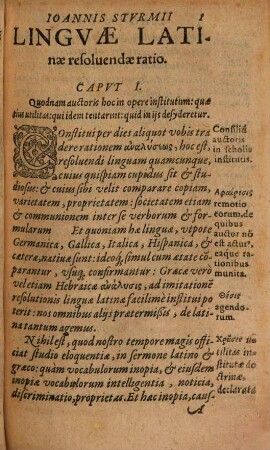 IOANNIS STVRMII 1
LINGVÆ LATI-
næ resoluendæ ratio.
CAPVT I.
Quodnam auctoris hoc in opere institutum: quæ
eius utilitas: qui idem tentarint: quid in ijs desyderetur.
Constitui per dies aliquot vobis tra
dere rationem ἀναλύσεως, hoc est,
resoluendi linguam quamcunque,
cuius quispiam cupidus sit & stu-
diosus: & cuius sibi velit comparare copiam,
varietatem, proprietatem: societatem etiam
& communionem inter se verborum & for-
mularum Et quoniam hæ linguæ, vtpote
Germanica, Gallica, Italica, Hispanica, &
cæteræ, natiuæ sunt: ideoq́, simul cum ætate cō
parantur, vsuq́, confirmantur: Græca verò
vel etiam Hebraicæ ἀνάλυσις, ad imitationē
resolutionis linguæ latinæ facilimè institui po
terit: nos omnibus alijs prætermissis, de lati-
na tantum agemus.
Nihil est, quod nostro tempore magis offi-
ciat studio eloquentiæ, in sermone latino &
græco: quàm vocabulorum inopia, & eiusdem
inopiæ vocabulorum intelligentia, notitia,
discriminatio, proprietas. Et hæc inopia, caus-
A
Consilium
auctoris
in scholis
institutis.
remotio
eorum, de
quibus
auctor nō
est actur9
eaque ra
tionibus
munita.
Θέσις
agendo-
rum.
Χρῆσις su
tilitas in-
stitutæ do
ctrinæ,
declarata